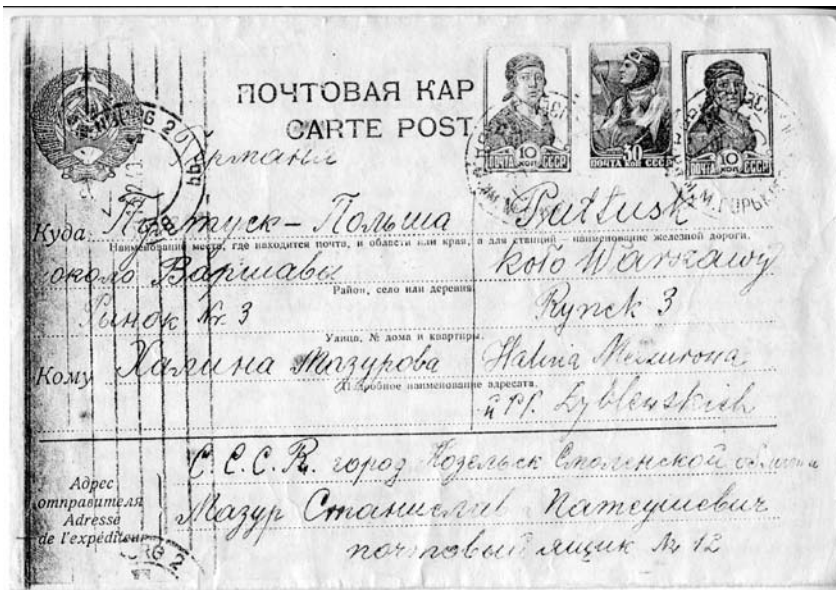 ПОЧТОВАЯ КАР
CARTE POST
Германия
10 КОП ПОЧТА СССР
ПОЧТА 30 КОП. СССР
ПОЧТА 10 КОП СССР
Куда Пултуск - Польша Pułtusk
Наименование места, где находится почта, и области или края, а для станций — наименование железной дороги.
около Варшавы koło Warszawy
Район, село или деревня.
Рынок Nr. 3 Rynek 3
Улица, № дома и квартиры.
Кому Халина Мазурова Halina Mazurowa
Подробное наименование адресата.
u PP. Dyblewskich
С.С.С.R. город Козельск Смоленской области
Адрес
отправителя
Adresse
de l'expéditeur
Мазур Станислав Матеушевич
почтовый ящик № 12